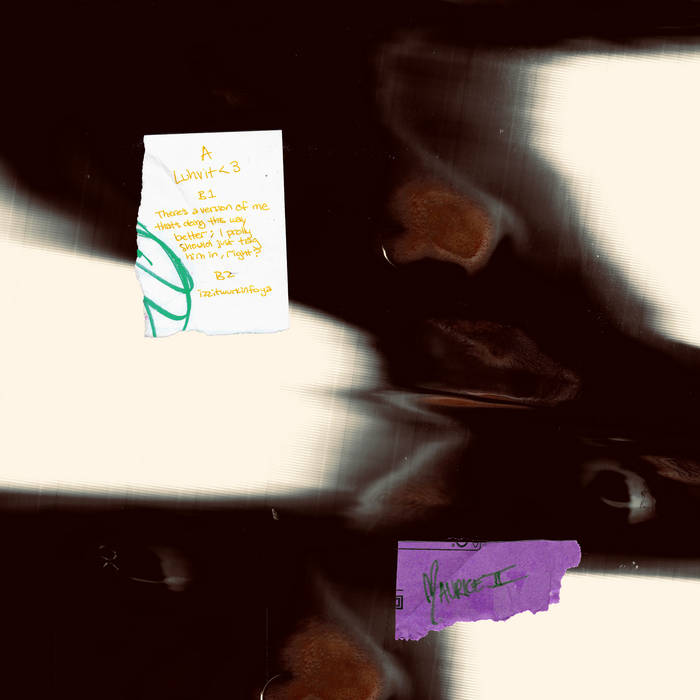 A
Luhvit<3
B1
There's a version of me
thats doing this way
better; I prolly
should just tag
him in, right?
B2
izzitwurkinfoya
Maurice II